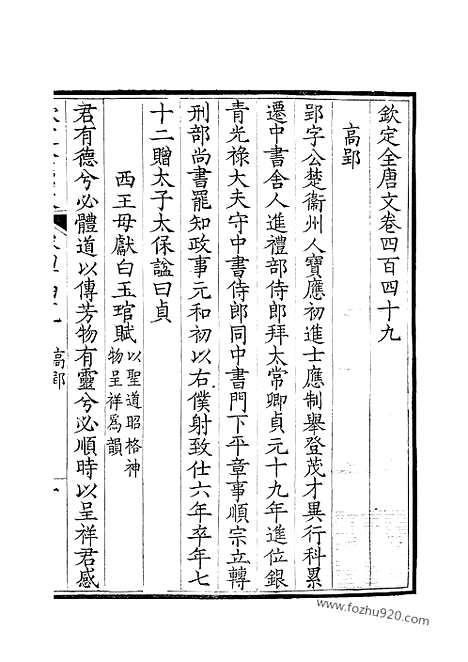 欽定全唐文卷四百四十九
高郢
郢字公楚衞州人寶應初進士應制舉登茂才異行科累
遷中書舍人進禮部侍郎拜太常卿貞元十九年進位銀
青光祿大夫守中書侍郎同中書門下平章事順宗立轉
刑部尚書罷知政事元和初以右僕射致仕六年卒年七
十二贈太子太保諡曰貞
西王母獻白玉琯賦
以聖道昭格神
物呈祥爲韻
君有德兮必體道以傳芳物有靈兮必順時以呈祥君感
高郢
www.fozhu920.com